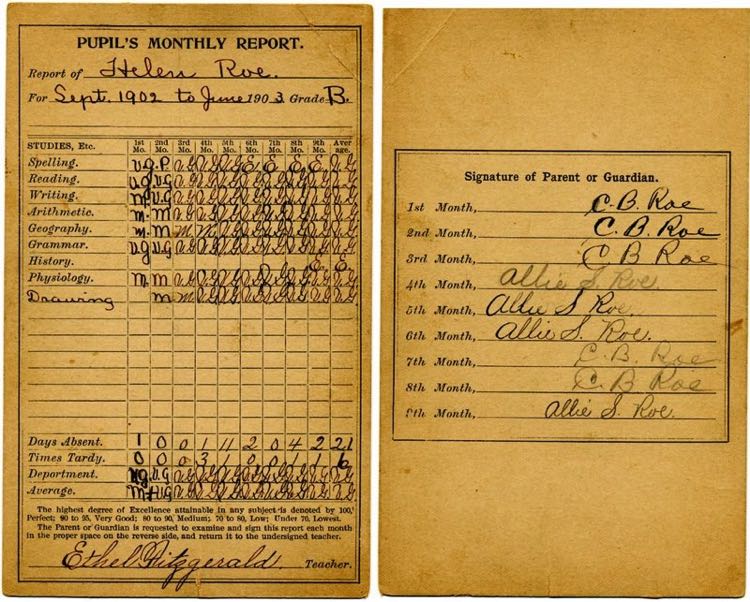 PUPIL'S MONTHLY REPORT.
Report of Helen Roe.
For Sept. 1902 to June 1903 Grade B.
STUDIES, Etc. 1st Mo. 2nd Mo. 3rd Mo. 4th Mo. 5th Mo. 6th Mo. 7th Mo. 8th Mo. 9th Mo. Average.
Spelling. V.g. P V G V G V G E E E E V G
Reading. V.g. V.G V G V G V G V G V G V G V G V G
Writing. M V.G V G V G V G V G V G V G V G V G
Arithmetic. m. M V G V G V G V G V G V G V G V G
Geography. m. M M M V G V G V G V G V G V G
Grammar. V.g V.G V G V G V G V G V G V G V G V G
History. E E
Physiology. M. m M V G V G V G V G V G V G V G
Drawing m M V G V G V G V G V G V G V G
Days Absent. 1 0 0 1 11 2 0 4 2 21
Times Tardy. 0 0 0 3 1 0 0 1 1 6
Deportment. V.g. V.G V G V G V G V G V G V G V G V G
Average. M+ V.G V G V G V G V G V G V G V G V G
The highest degree of Excellence attainable in any subject is denoted by 100,
Perfect; 90 to 95, Very Good; 80 to 90, Medium; 70 to 80, Low; Under 70, Lowest.
The Parent or Guardian is requested to examine and sign this report each month
in the proper space on the reverse side, and return it to the undersigned teacher.
Ethel Fitzgerald. Teacher.
Signature of Parent or Guardian.
1st Month, C. B. Roe
2nd Month, C. B. Roe
3rd Month, C B Roe
4th Month, Allie S. Roe.
5th Month, Allie S. Roe.
6th Month, Allie S. Roe.
7th Month, C. B. Roe
8th Month, C. B Roe
9th Month, Allie S. Roe.